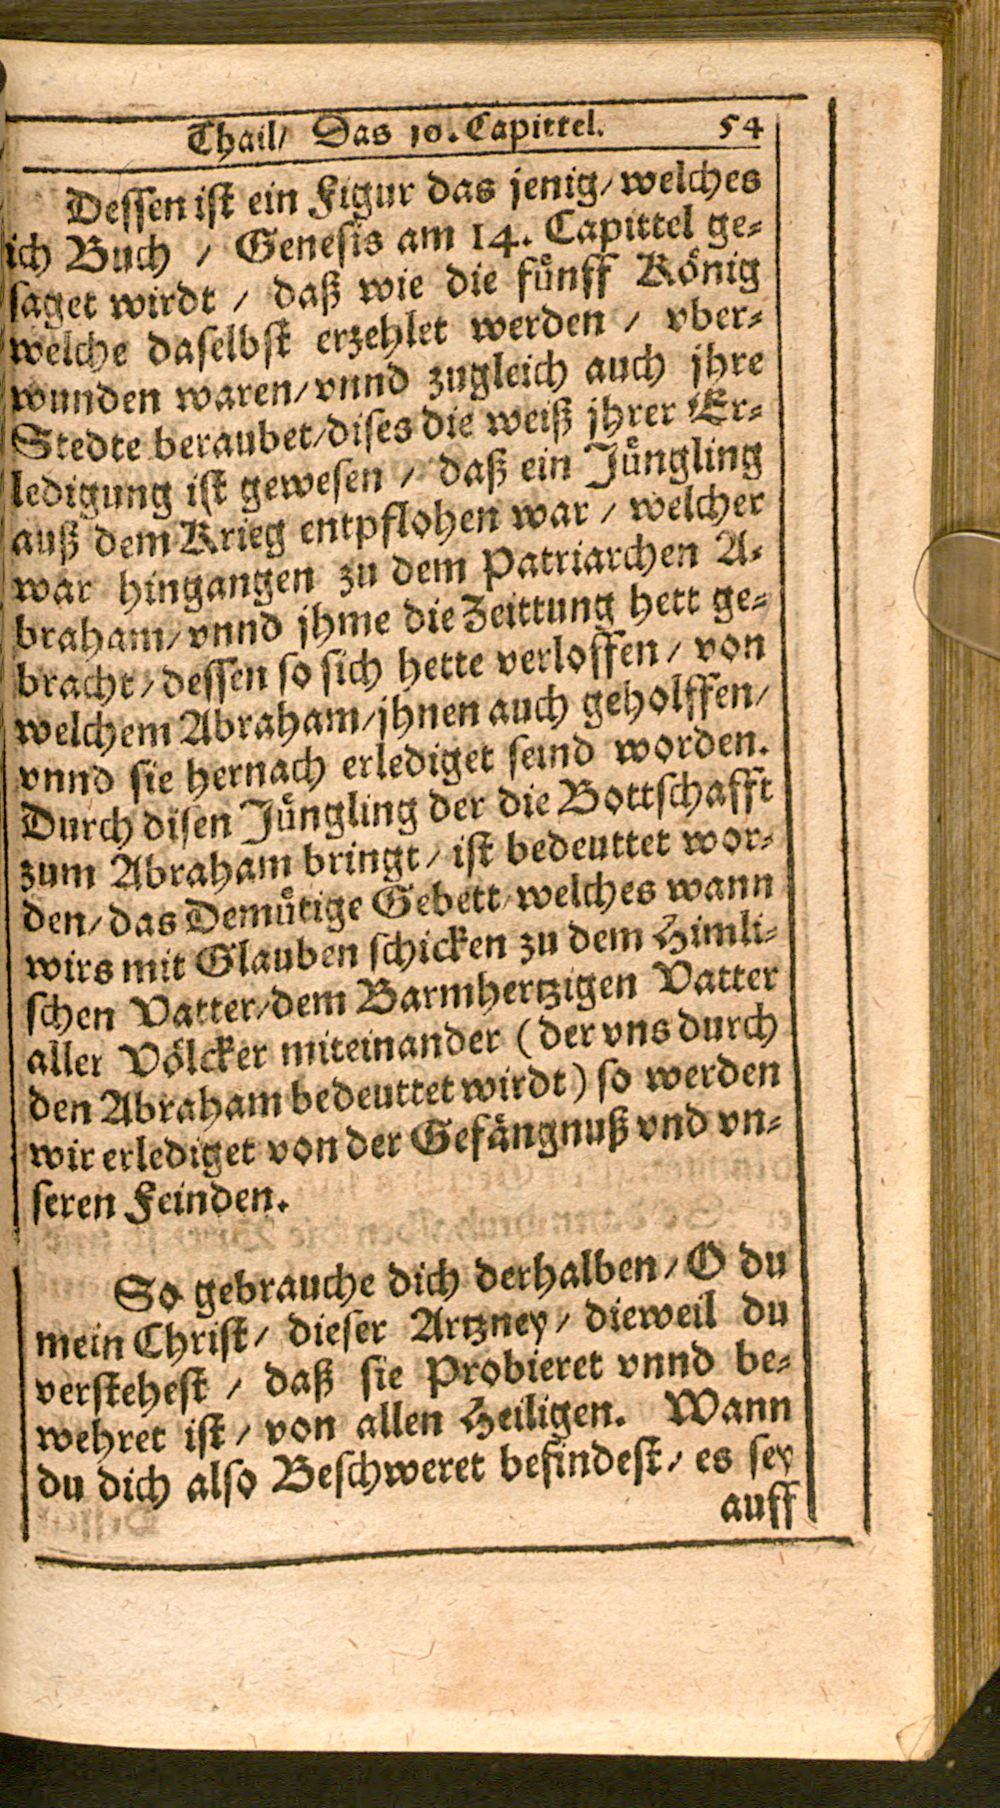 Thail/ Das 10. Capittel. 54
Dessen ist ein Figur das jenig/ welches
ich Buch / Genesis am 14. Capittel ge-
saget wirdt / daß wie die fünff König
welche daselbst erzehlet werden / vber-
wunden waren/ vnnd zugleich auch jhre
Stedte beraubet/ dises die weiß jhrer Er-
ledigung ist gewesen / daß ein Jüngling
auß dem Krieg entpflohen war / welcher
war hingangen zu dem Patriarchen A-
braham/ vnnd jhme die Zeittung hett ge-
bracht/ dessen so sich hette verloffen / von
welchem Abraham/ jhnen auch geholffen/
vnnd sie hernach erlediget seind worden.
Durch disen Jüngling der die Bottschafft
zum Abraham bringt/ ist bedeuttet wor-
den/ das Demütige Gebett/ welches wann
wirs mit Glauben schicken zu dem Himli-
schen Vatter/ dem Barmhertzigen Vatter
aller Völcker miteinander (der vns durch
den Abraham bedeuttet wirdt) so werden
wir erlediget von der Gefängnuß vnd vn-
seren Feinden.
So gebrauche dich derhalben/ O du
mein Christ/ dieser Artzney/ dieweil du
verstehest / daß sie Probieret vnnd be-
wehret ist/ von allen Heiligen. Wann
du dich also Beschweret befindest/ es sey
auff